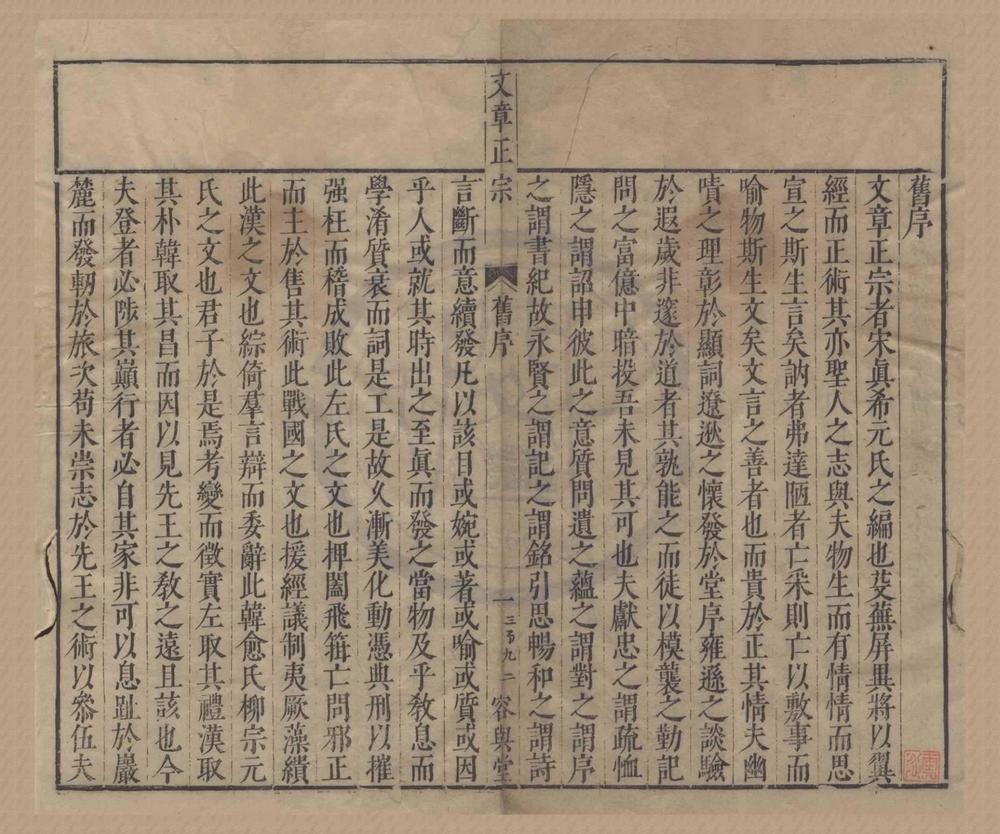 舊序
文章正宗者宋眞希元氏之編也芟蕪屏異將以翼
經而正術其亦聖人之志與夫物生而有情情而思
宣之斯生言矣訥者弗達陋者亡采則亡以敷事而
喻物斯生文矣文言之善者也而貴於正其情夫幽
嘖之理彰於顯詞遼逖之懷發於堂序雍遜之談驗
於遐歲非邃於道者其孰能之而徒以模襲之勤記
問之富億中暗投吾未見其可也夫獻忠之謂疏恤
隱之謂詔申彼此之意質問遺之蘊之謂對之謂序
之謂書紀故永賢之謂記之謂銘引思暢和之謂詩
文章正宗
舊序
一
容與堂
言斷而意續發凡以該目或婉或著或喻或質或因
乎人或就其時出之至眞而發之當物及乎敎息而
學淆質衰而詞是工是故久漸美化動憑典刑以摧
强枉而稽成敗此左氏之文也捭闔飛箝亡問邪正
而主於售其術此戰國之文也援經議制夷厥藻繢
此漢之文也綜倚羣言辯而委辭此韓愈氏柳宗元
氏之文也君子於是焉考變而徵實左取其禮漢取
其朴韓取其昌而因以見先王之敎之遠且該也今
夫登者必陟其巔行者必自其家非可以息趾於巖
麓而發軔於旅次苟未崇志於先王之術以叅伍夫